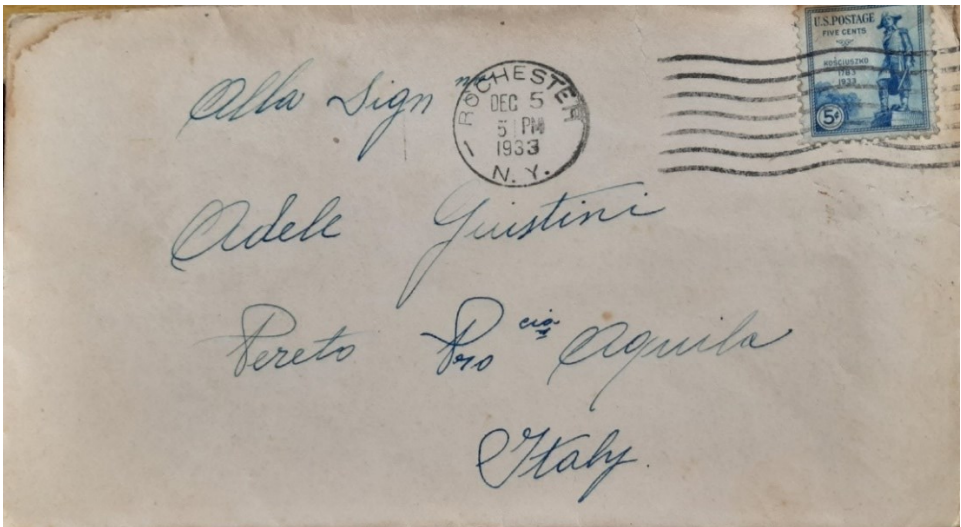 U.S. POSTAGE
FIVE CENTS
KOSCIUSZKO
1783
1933
5¢
ROCHESTER
DEC 5
5 PM
1933
N. Y.
Alla Sign ra
Adele Giustini
Pereto Pro cia Aquila
Italy.